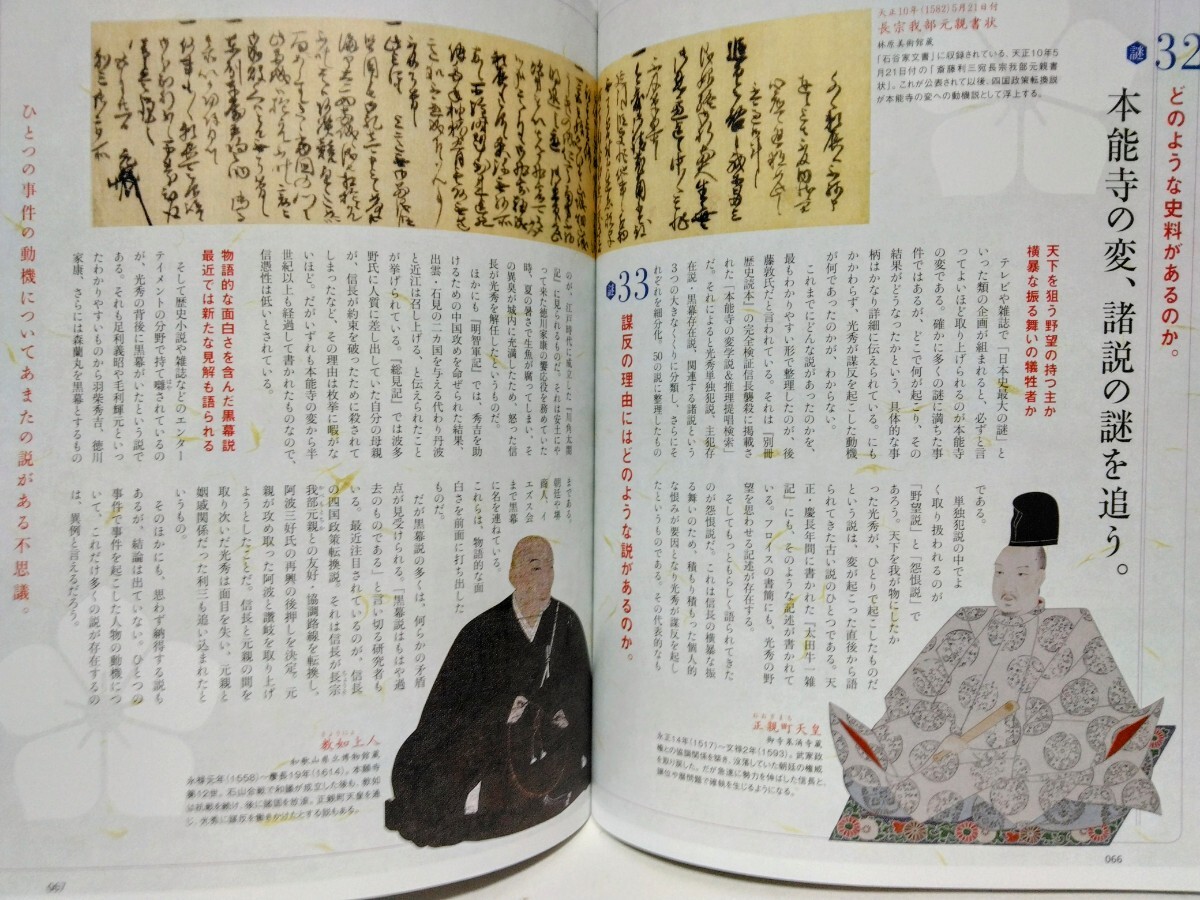 謎32
どのような史料があるのか。
本能寺の変、諸説の謎を追う。
天正10年(1582)5月21日付
長宗我部元親書状
林原美術館蔵
「石谷家文書」に収録されている、天正10年5
月21日付の「斎藤利三宛長宗我部元親書
状」。これが公表されて以後、四国政策転換説
が本能寺の変への動機説として浮上する。
天下を狙う野望の持つ主か
横暴な振る舞いの犠牲者か
テレビや雑誌で「日本史最大の謎」と
いった類の企画が組まれると、必ずと言
ってよいほど取り上げられるのが本能寺
の変である。確かに多くの謎に満ちた事
件ではあるが、どこで何が起こり、その
結果がどうなったかという、具体的な事
柄はかなり詳細に伝えられている。にも
かかわらず、光秀が謀反を起こした動機
が何であったのかが、わからない。
これまでにどんな説があったのかを、
最もわかりやすい形で整理したのが、後
藤敦氏だと言われている。それは『別冊
歴史読本』の完全検証信長襲殺に掲載さ
れた「本能寺の変学説&推理提唱検索」
だ。それによると光秀単独犯説、主犯存
在説・黒幕存在説、関連する諸説という
3つの大きなくくりに分類し、さらにそ
れを細分化。50の説に整理したもの
である。
単独犯説の中でよ
く取り扱われるのが
「野望説」と「怨恨説」で
あろう。天下を我が物にしたか
った光秀が、ひとりで起こしたものだ
という説は、変が起こった直後から語
られてきた古い説のひとつである。天
正・慶長年間に書かれた『太田牛一雑
記』にも、そのような記述が書かれて
いる。フロイスの書簡にも、光秀の野
望を思わせる記述が存在する。
そしてもっともらしく語られてきた
のが怨恨説だ。これは信長の横暴な振
る舞いのため、積もり積もった個人的
な恨みが要因となり光秀が謀反を起し
たというものである。その代表的なも
謎33
謀反の理由にはどのような説があるのか。
正親町天皇
おおぎまち
御寺泉涌寺蔵
永正14年(1517)〜文禄2年(1593)。武家政
権との協調関係を築き、没落していた朝廷の権威
を取り戻した。だが急速に勢力を伸ばした信長と、
譲位や暦問題で確執を生じるようになる。
066
のが、江戸時代に成立した『川角太閤
記』に見られるものだ。それは安土にや
って来た徳川家康の饗応役を務めていた
時、夏の暑さで生魚が腐ってしまい、そ
の異臭が城内に充満したため、怒った信
長が光秀を解任したというものだ。
ほかにも『明智軍記』では、秀吉を助
けるための中国攻めを命ぜられた結果、
出雲・石見の二か国を与える代わり丹波
と近江は召し上げる、と伝えられたこと
が挙げられている。『総見記』では波多
野氏に人質に差し出していた自分の母親
が、信長が約束を破ったために殺されて
しまったなど、その理由は枚挙に暇がな
いほどだ。だがいずれも本能寺の変から半
世紀以上も経過して書かれたものなので、
信憑性は低いとされている。
物語的な面白さを含んだ黒幕説
最近では新たな見解も語られる
そして歴史小説や雑誌などのエンター
テイメントの分野で持て囃されているの
が、光秀の背後に黒幕がいたという説で
ある。それも足利義昭や毛利輝元といっ
たわかりやすいものから羽柴秀吉、徳川
家康、さらには森蘭丸を黒幕とするもの
まである。
朝廷や堺
商人、イ
エズス会
まで黒幕
に名を連ねている。
これらは、物語的な面
白さを前面に打ち出した
ものだ。
だが黒幕説の多くは、何らかの矛盾
点が見受けられる。「黒幕説はもはや過
去のものである」と言い切る研究者も
いる。最近注目されているのが、信長
の四国政策転換説。それは信長が長宗
我部元親との友好・協調路線を転換し、
阿波三好氏の再興の後押しを決定。元
親が攻め取った阿波と讃岐を取り上げ
ようとしたことだ。信長と元親の間を
取り次いだ光秀は面目を失い、元親と
姻戚関係だった利三も追い込まれたと
いうもの。
そのほかにも、思わず納得する説も
あるが、結論は出ていない。ひとつの
事件で事件を起こした人物の動機につ
いて、これだけ多くの説が存在するの
は、異例と言えるだろう。
教如上人
きょうにょ
和歌山県立博物館蔵
永禄元年(1558)〜慶長19年(1614)。本願寺
第12世。石山合戦で和議が成立した後も、教如
は抗戦を続け、後に諸国を放浪。正親町天皇を通
じ、光秀に謀反を働きかけたとする説もある。
ひとつの事件の動機についてあまたの説がある不思議。
067